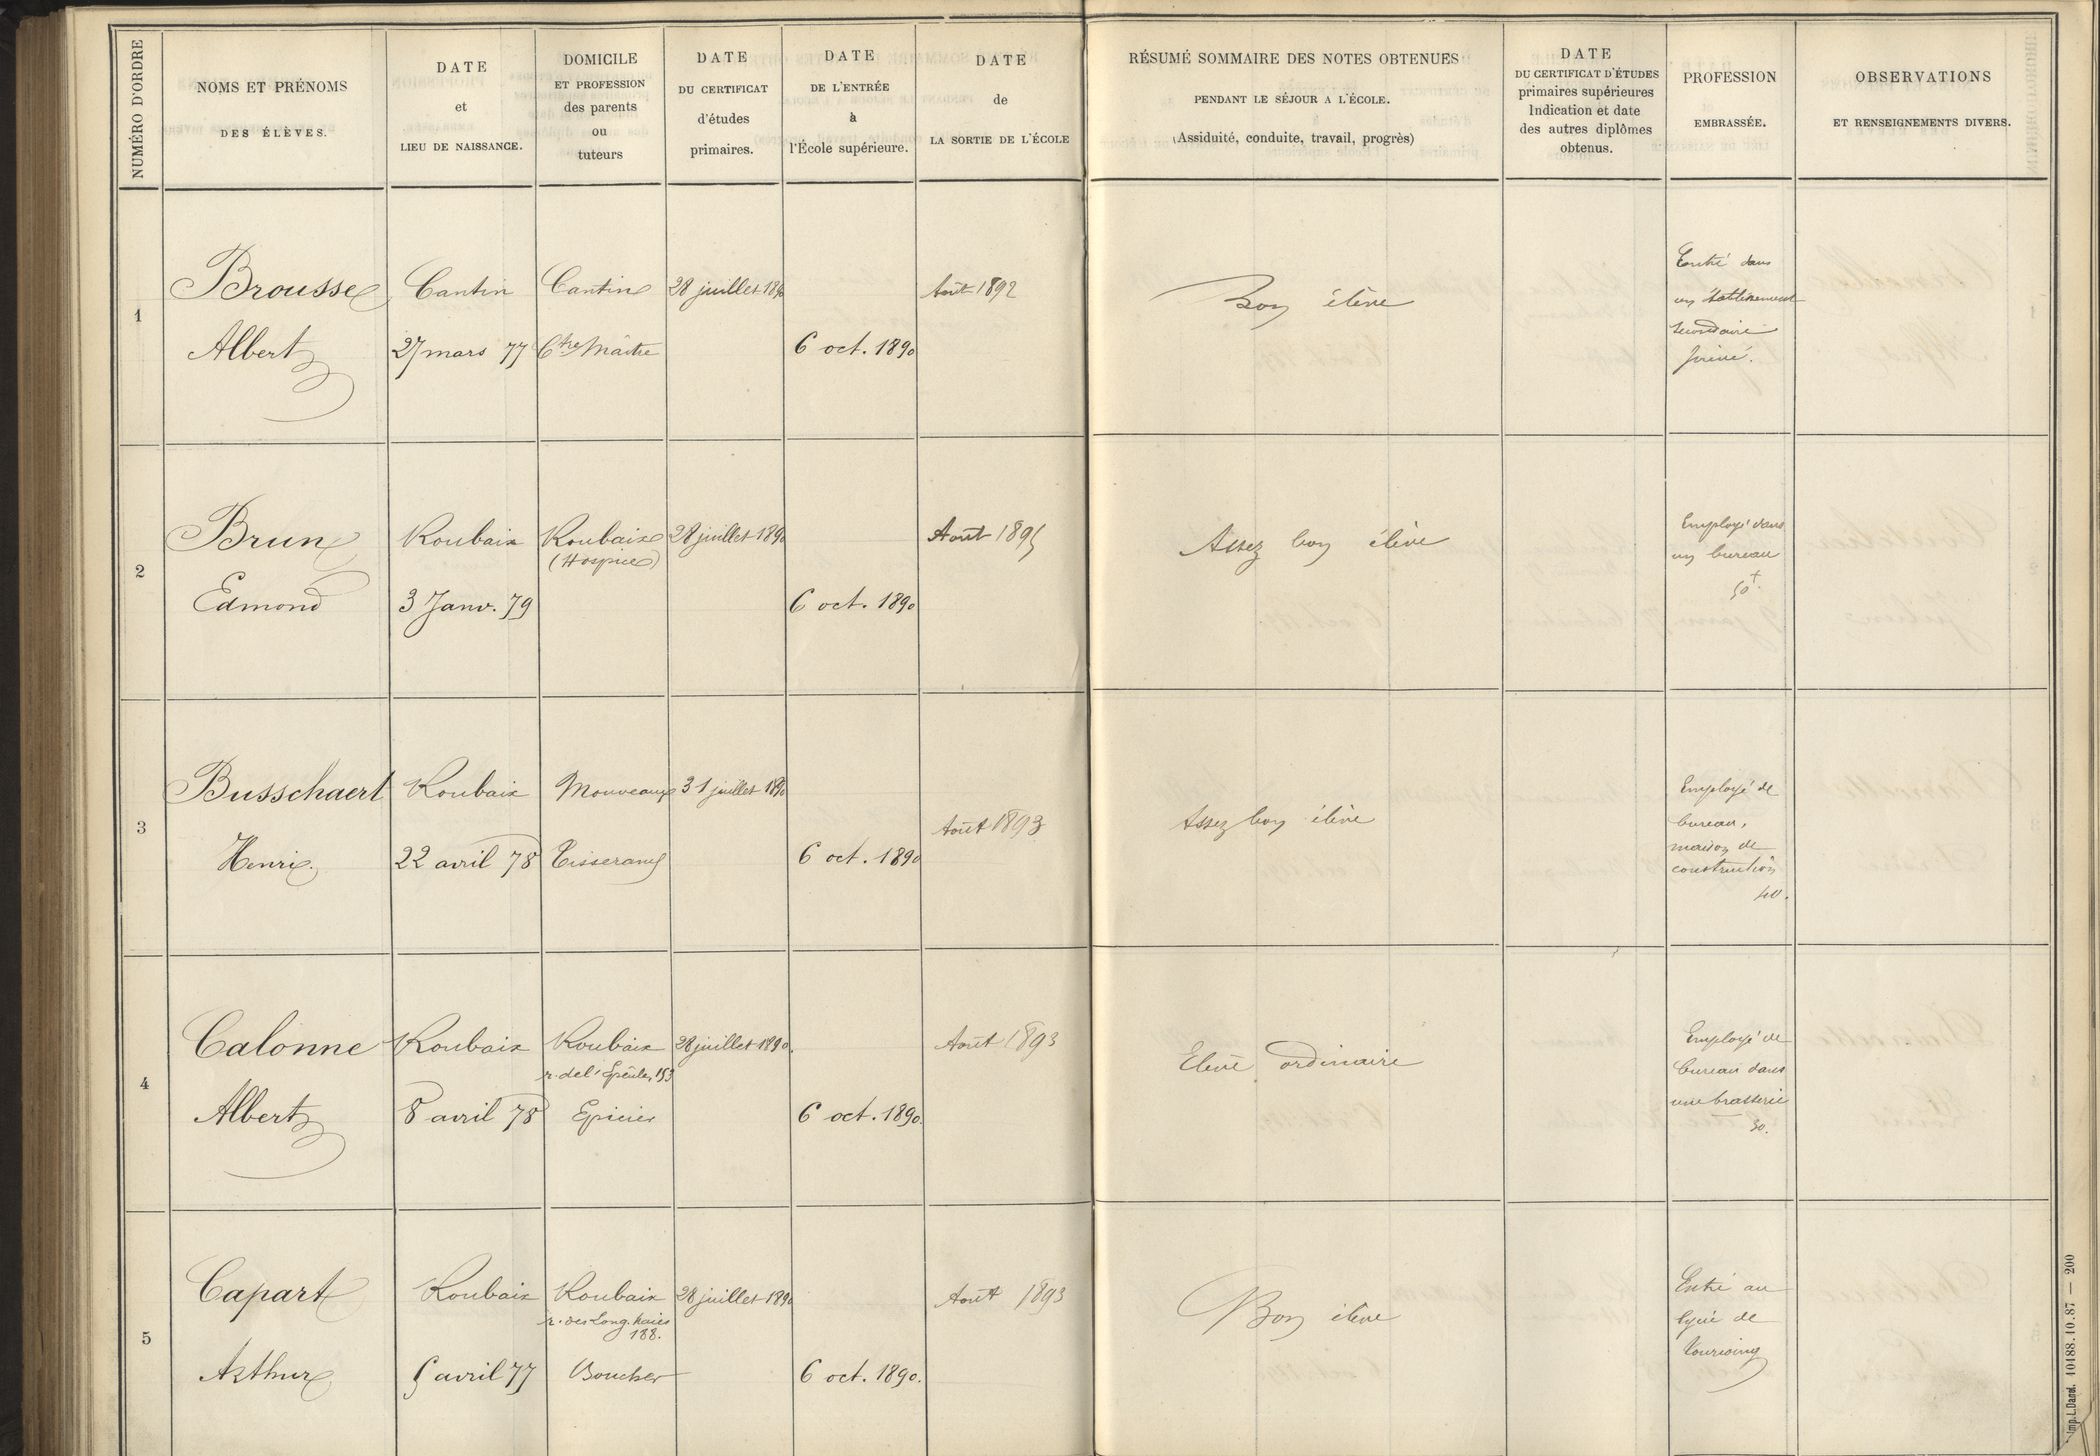 NUMÉRO D'ORDRE
NOMS ET PRÉNOMS
DES ÉLÈVES.
DATE
et
LIEU DE NAISSANCE.
DOMICILE
ET PROFESSION
des parents
ou
tuteurs
DATE
DU CERTIFICAT
d'études
primaires.
DATE
DE L'ENTRÉE
à
l'École supérieure.
DATE
de
LA SORTIE DE L'ÉCOLE
RÉSUMÉ SOMMAIRE DES NOTES OBTENUES
PENDANT LE SÉJOUR A L'ÉCOLE.
(Assiduité, conduite, travail, progrès)
DATE
DU CERTIFICAT D'ÉTUDES
primaires supérieures
Indication et date
des autres diplômes
obtenus.
PROFESSION
EMBRASSÉE.
OBSERVATIONS
ET RENSEIGNEMENTS DIVERS.
1
Brousse
Albert
Cantin
27 mars 77
Cantin
Ctre Maître
28 juillet 1890
6 oct. 1890
Août 1892
Bon élève
Entré dans
un établissement
secondaire
privé.
2
Brun
Edmond
Roubaix
3 Janv. 79
Roubaix
(Hospice)
28 juillet 1890
6 oct. 1890
Août 1895
Assez bon élève
Employé dans
un bureau
50 +.
3
Busschaert
Henri.
Roubaix
22 avril 78
Mouveaux
Tisserand
31 juillet 1890
6 oct. 1890
Août 1893
Assez bon élève
Employé de
bureau,
maison de
construction
40.
4
Calonne
Albert
Roubaix
8 avril 78
Roubaix
r. de l'Epeule, 153
Epicier
28 juillet 1890.
6 oct. 1890.
Août 1893
Elève ordinaire
Employé de
bureau dans
une brasserie
30.
5
Capart
Arthur
Roubaix
5 avril 77
Roubaix
r. des Long. haies
188.
Boucher
28 juillet 1890
6 oct. 1890.
Août 1893
Bon élève
Entré au
lycée de
Tourcoing
Imp. L. Danel. 10488.10.87 — 200